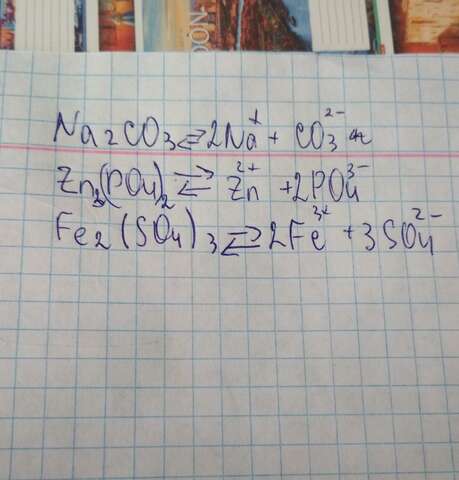 NỘ
Na2CO3⇄2Na⁺ + CO3²⁻
Zn3(PO4)2 ⇄ Zn²⁺ +2PO4³⁻
Fe2(SO4)3⇄2Fe³⁺ +3SO4²⁻